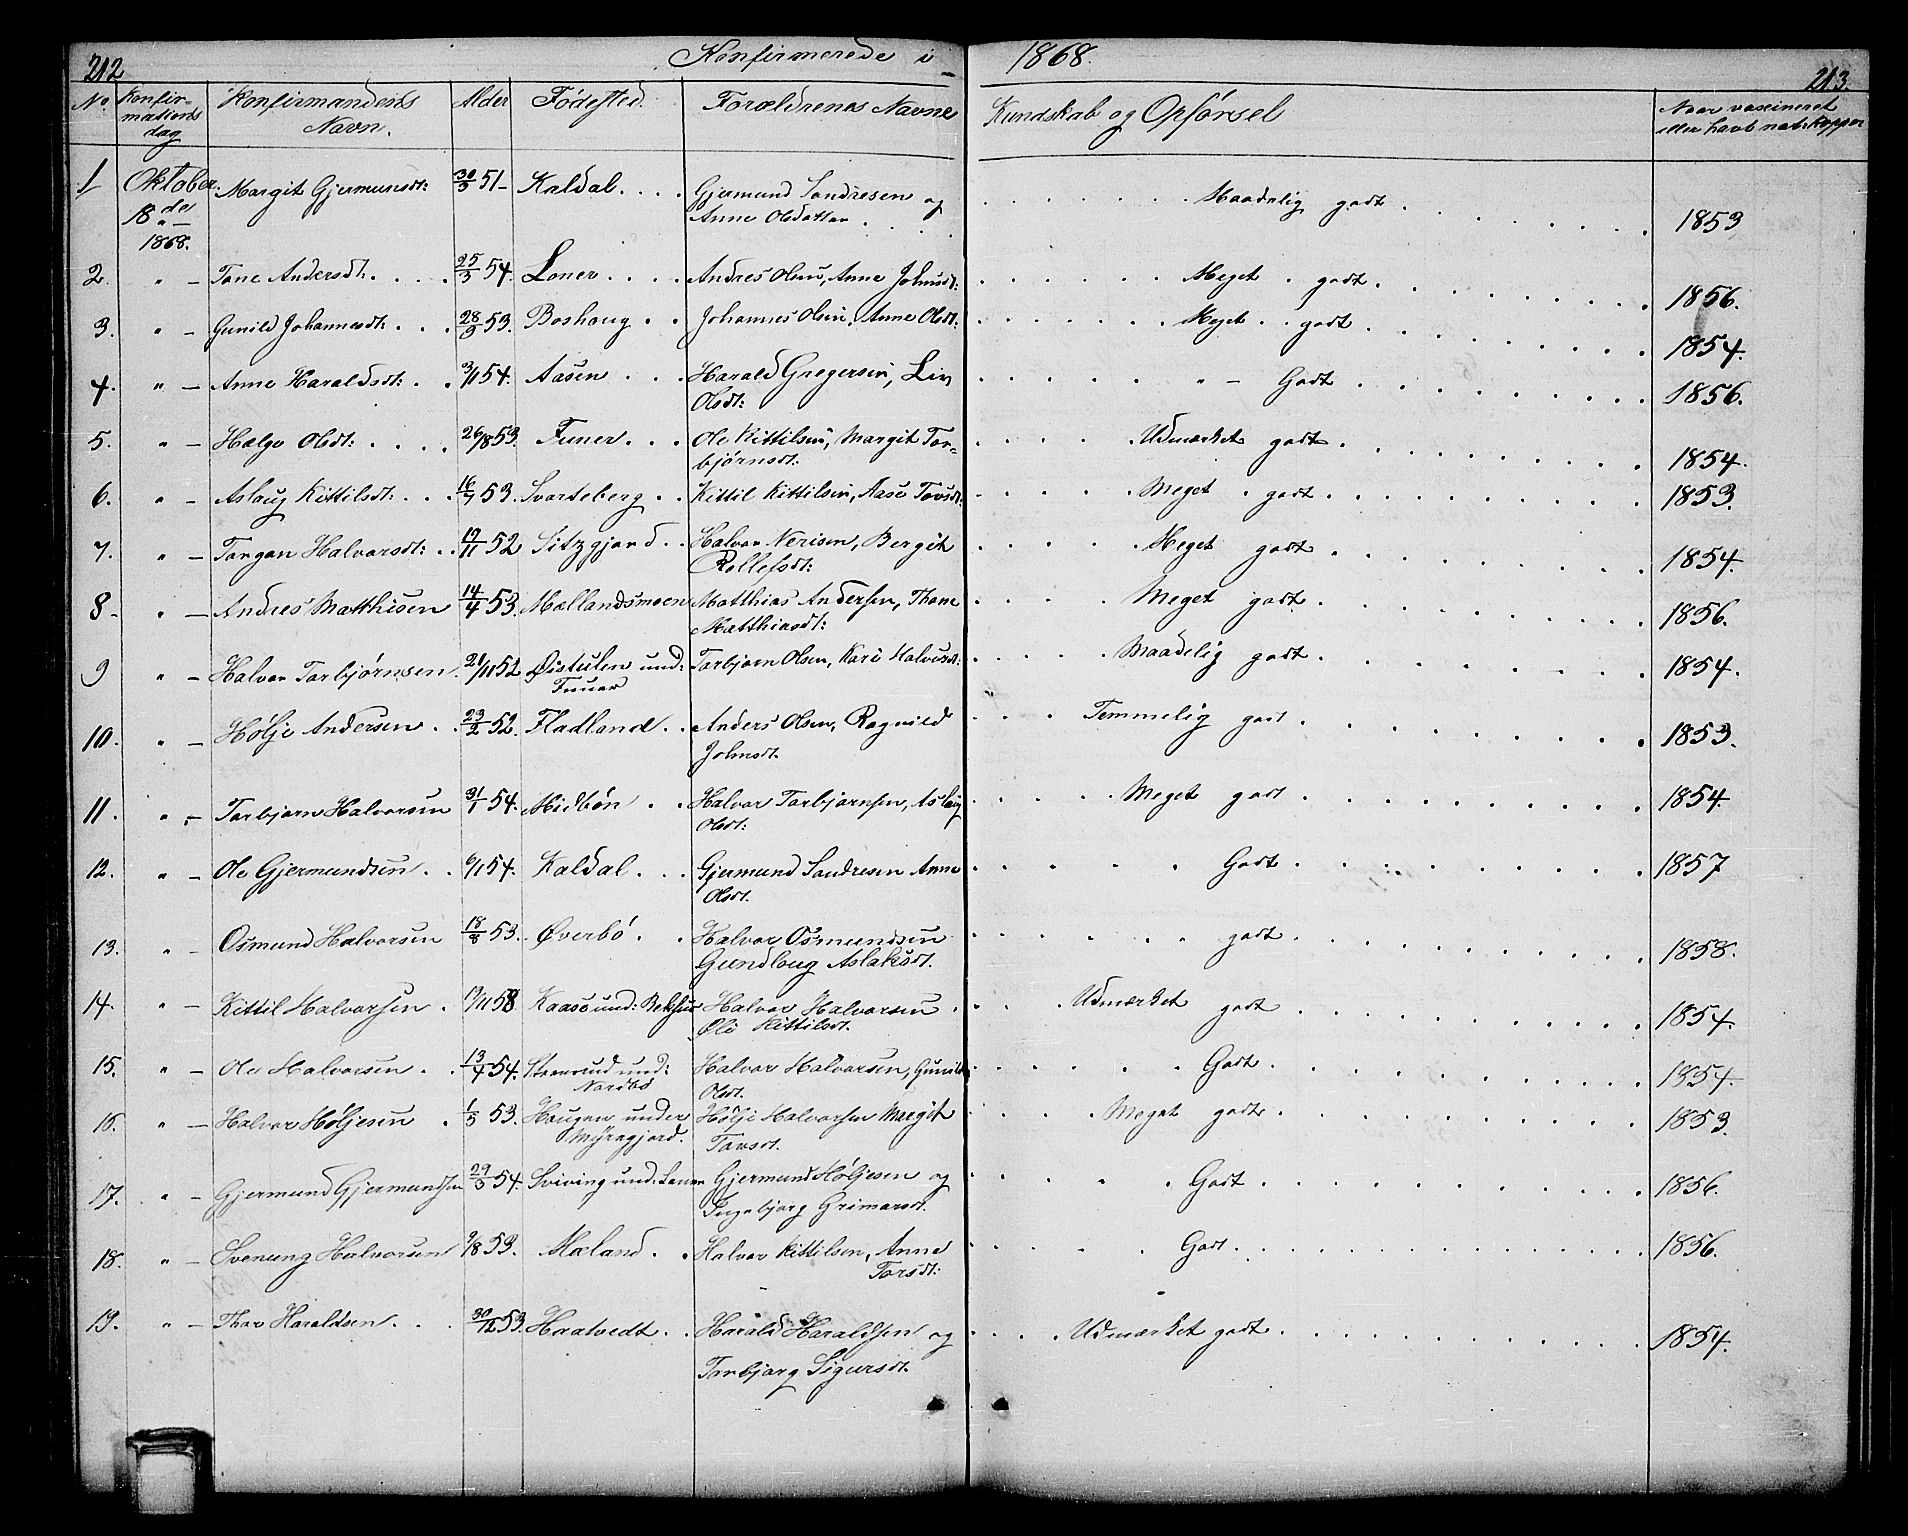 212 Konfirmerede i 1868. 213.
No Konfirmations dag Konfirmandens Navn. Alder Fødested. Forældrenes Navne Kundskab og Opførsel Naar vaxineret eller havt nat: Kopper
1 Oktober 18de 1868. Margit Gjermundsdt: 30/5 51 Kaldal Gjermund Sondresen og Anne Olsdatter Maadelig godt 1853
2. " Tone Andersdt: 25/3 54. Loner Andres Olsen, Anne Johnsdt: Meget godt 1856.
3. " Gunild Johannesdt: 53. Boshoug Johannes Olsen, Anne Olsdt: Meget godt 1854.
4. " Anne Haraldsdt: 3/11 54. Aasen Harald Gregersen, Liv Olsdt: " Godt 1856.
5. " Hælge Olsdt: 26/8 53. Funer Ole Kittilsen, Margit Torbjørnsdt: Udmærket godt 1854.
6. " Aslaug Kittilsdt: 16/7 53. Svarteberg Kittil Kittilsen, Aase Tovsdt: Meget godt 1853.
7. " Torgon Halvorsdt: 19/11 52 Sitzgjord Halvor Nerisen, Bergit Rollefsdt: Meget godt 1854.
8 " Andres Matthisen 14/4 53. Mællandsmoen Matthias Andersen, Thone Matthiasdt: Meget godt 1856.
9 " Halvor Torbjørnsen 21/11 52 Øistulen und: Funer Torbjørn Olsen, Kari Halvorsdt: Maadelig godt 1854.
10. " Hølje Andersen 23/2 52. Fladland Anders Olsen, Ragnild Johnsdt. Temmelig godt 1853.
11. " Torbjørn Halvorsen 31/1 54. Midbøn Halvor Torbjørnsen, Aslaug Olsdt: Meget godt 1854.
12. " Ole Gjermundsen 6/1 54. Kaldal Gjermund Sondresen Anne Olsdt. Godt 1857
13. " Osmund Halvorsen 18/8 53. Øverbø Halvor Osmundsen Gundloug Aslaksdt. godt 1858.
14. " Kittil Halvorsen 58 Kaasø und: Bekhus Halvor Halvorsen Øli Kittilsdt. Udmærket godt 1854.
15. " Ole Halvorsen 13/4 54. und: Nordbø Halvor Halvorsen, Gunild Olsdt. Godt 1854.
16. " Halvor Høljesen 1/5 53. Haugen under Myregjord. Hølje Halvorsen Margit Tovsdt. Meget godt 1853.
17. " Gjermund Gjermundsen 29/3 54. Sviving und: Loner Gjermund Høljesen og Ingebjorg Grimarsdt. Godt 1856.
18. " Svenung Halvorsen 9/8 53. Mæland. Halvor Kittilsen, Anne Torsdt: Godt 1856.
19. " Thor Haraldsen 30/12 53. Haatvedt Harald Haraldsen og Torbjørg Sigursdt. Udmærket godt 1854.